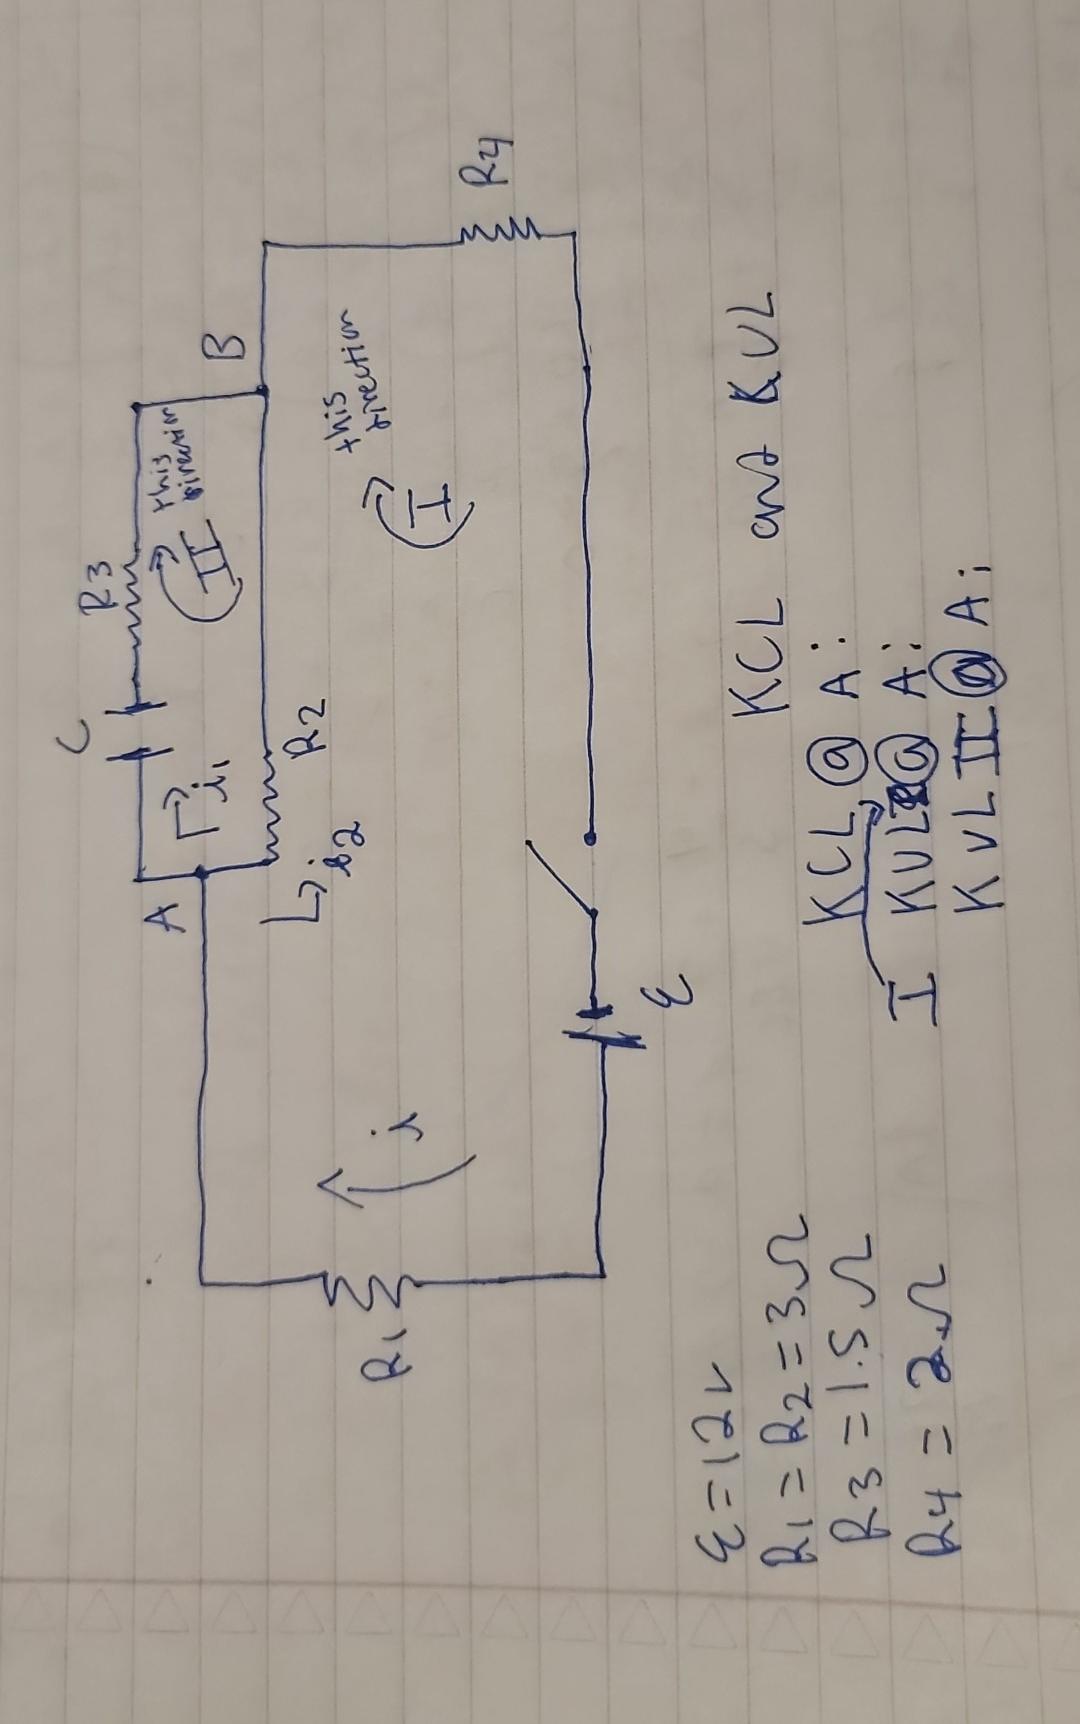 C
R3
A
i1
II
this
direction
B
i2
R2
R1
i
I
this
direction
R4
ε
ε = 12v
R1 = R2 = 3Ω
R3 = 1.5Ω
R4 = 2Ω
KCL and KVL
KCL @ A:
I KVL @ A:
KVL II @ A: